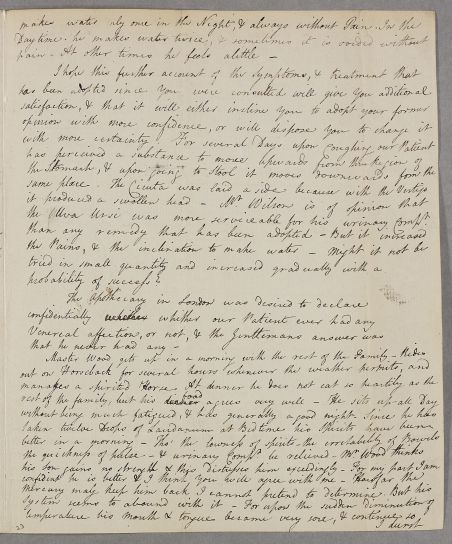 makes water only once in the Night, & always without Pain. In the
Daytime he makes water twice, & sometimes it is voided without
pain - At other times he feels alittle -
I hope this further account of the Symptoms, & treatment that
has been adopted since you were consulted will give you additional
satisfaction, & that it will either incline you to adopt your former
opinion with more confidence, or will dispose you to change it
with more certainty. For several Days upon Coughing our Patient
has perceived a substance to move upwards from the Region of
the Stomach, & upon going to Stool it moves downwards from the
same place. The Cicuta was laid aside because with the Vertigo
it produced a swollen head - Mr Wilson is of opinion that
the Uva Ursi was more serviceable for his urinary Compt
than any remedy that has been adopted - But it increased
the Pains, & the inclination to make water - Might it not be
tried in small quantity and increased gradually with a
probability of success?
The Apothecary in London was desired to declare
confidentially whether whether our Patient ever had any
Venereal affection, or not, & the Gentlemans answer was
that he never had any -
Master Wood gets up in a morning with the rest of the Family - Rides
out on Horseback for several hours whenever the weather permits, and
manages a spirited Horse. At dinner he does not eat so heartily as the
rest of the family, but his food agrees very well - He sits up all Day
without being much fatigued, & has generally a good night. Since he has
taken twelve Drops of Laudanum at Bedtime his Spirits have been
better in a morning - Tho' the lowness of Spirits - the irritability of Bowels
the quickness of pulse - & urinary Compt be relieved - Mr Wood thinks
his son gains no strength & this distresses him exceedingly - For my part I am
confident he is better & I think you will agree with me - How far the
Mercury may keep him back I cannot pretend to determine. But his
System seems to abound with it - For upon the sudden diminution of
temperature his mouth & tongue became very sore, & continue so, I
durst